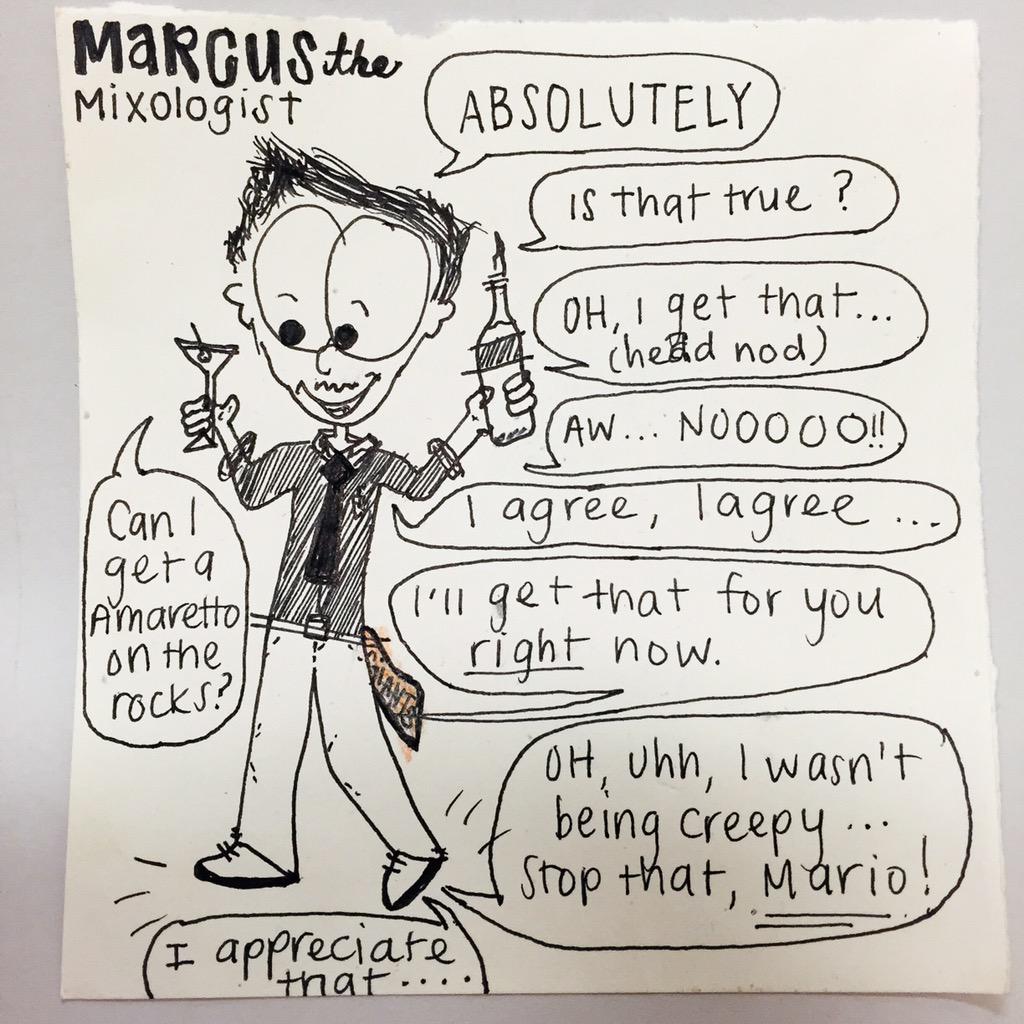 MARCUS the
Mixologist
ABSOLUTELY
is that true?
OH, I get that...
(head nod)
AW... NOOOOO!!
I agree, I agree ...
I'll get that for you
right now.
Can I
get a
Amaretto
on the
rocks?
GIANTS
OH, uhh, I wasn't
being creepy...
Stop that, Mario!
I appreciate
that....